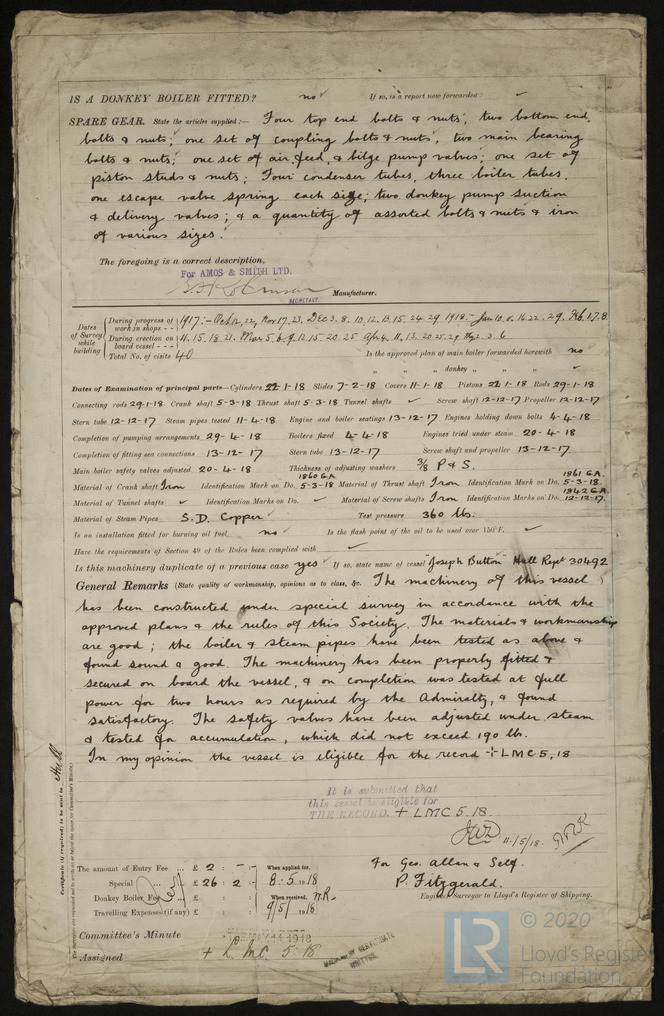 IS A DONKEY BOILER FITTED? no ✓ If so, is a report now forwarded? ✓
SPARE GEAR. State the articles supplied:— Four top end bolts & nuts, two bottom end
bolts & nuts; one set of coupling bolts & nuts, two main bearing
bolts & nuts; one set of air, feed, & bilge pump valves; one set of
piston studs & nuts; Four condenser tubes, three boiler tubes,
one escape valve spring each size; two donkey pump suction
& delivery valves; & a quantity of assorted bolts & nuts & iron
of various sizes.
The foregoing is a correct description,
For AMOS & SMITH LTD.
Manufacturer.
SECRETARY.
Dates of Survey while building
During progress of work in shops - - 1917:- Oct 12, 22, Nov 17. 23. Dec 3. 8. 10. 12. 13. 15. 24. 29. 1918:- Jan 10. 8. 16. 22. 29. Feb. 1. 7. 8.
During erection on board vessel - - - 11. 15. 18. 21. Mar 5. 6. 9. 12. 15. 20. 25 Apr 4. 11. 13. 20. 25. 29 3. 6.
Total No. of visits 40 Is the approved plan of main boiler forwarded herewith no
" " " donkey " " " ✓
Dates of Examination of principal parts—Cylinders 22-1-18 Slides 7-2-18 Covers 11-1-18 Pistons 22-1-18 Rods 29-1-18
Connecting rods 29-1-18 Crank shaft 5-3-18 Thrust shaft 5-3-18 Tunnel shafts ✓ Screw shaft 12-12-17 Propeller 12-12-17
Stern tube 12-12-17 Steam pipes tested 11-4-18 Engine and boiler seatings 13-12-17 Engines holding down bolts 4-4-18
Completion of pumping arrangements 29-4-18 Boilers fixed 4-4-18 Engines tried under steam 20-4-18
Completion of fitting sea connections 13-12-17 Stern tube 13-12-17 Screw shaft and propeller 13-12-17.
Main boiler safety valves adjusted 20-4-18 Thickness of adjusting washers 3/8 P & S.
Material of Crank shaft Iron Identification Mark on Do. 1860 GA 5-3-18 Material of Thrust shaft Iron Identification Mark on Do. 1861 GA. 5-3-18.
Material of Tunnel shafts ✓ Identification Marks on Do. ✓ Material of Screw shafts Iron Identification Marks on Do. 1842 GA 12-12-17.
Material of Steam Pipes S.D. Copper Test pressure 360 lbs.
Is an installation fitted for burning oil fuel no ✓ Is the flash point of the oil to be used over 150°F. ✓
Have the requirements of Section 49 of the Rules been complied with ✓
Is this machinery duplicate of a previous case yes ✓ If so, state name of vessel "Joseph Button" Hull Rept 30492
General Remarks (State quality of workmanship, opinions as to class, &c. The machinery of this vessel
has been constructed under special survey in accordance with the
approved plans & the rules of this Society. The materials & workmanship
are good; the boiler & steam pipes have been tested as above &
found sound & good. The machinery has been properly fitted &
secured on board the vessel, & on completion was tested at full
power for two hours as required by the Admiralty, & found
satisfactory. The safety valves have been adjusted under steam
& tested for accumulation, which did not exceed 190 lb.
In my opinion the vessel is eligible for the record + LMC 5,18
It is submitted that
this vessel is eligible for
THE RECORD. + LMC 5.18.
11/5/18.
Certificate (if required) to be sent to Hull
The amount of Entry Fee ... £ 2 : - : When applied for,
Special ... £ 26 : 2 : 8.5.1918
Donkey Boiler Fee ... £ When received,
Travelling Expenses (if any) £ 9/5/1918
For Geo. Allan & Self.
P. Fitzgerald.
Engineer Surveyor to Lloyd's Register of Shipping.
Committee's Minute
Assigned + L.M.C. 5.18
MACHINERY CERTIFICATE
WRITTEN
LR
© 2020
Lloyd's Register
Foundation